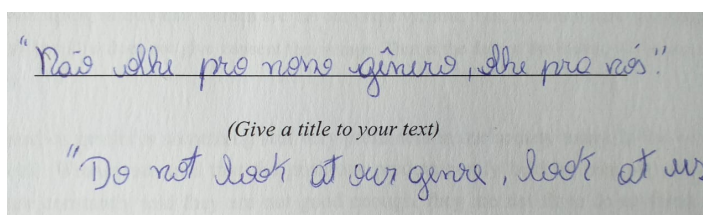 "Não olhe pro nono gênero, olhe pra nós".
(Give a title to your text)
"Do not look at our genre, look at us